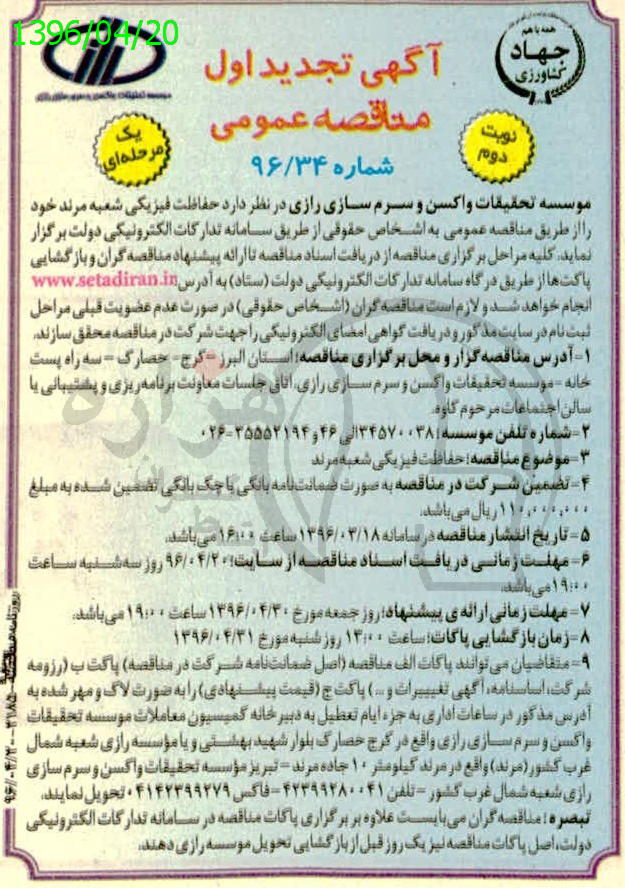 1396/04/20
همه با هم
جهاد
کشاورزی
موسسه تحقیقات واکسن و سرم سازی رازی
آگهی تجدید اول
مناقصه عمومی
شماره ۹۶/۳۴
یک
مرحله‌ای
نوبت
دوم
موسسه تحقیقات واکسن و سرم سازی رازی در نظر دارد حفاظت فیزیکی شعبه مرند خود
را از طریق مناقصه عمومی به اشخاص حقوقی از طریق سامانه تدارکات الکترونیکی دولت برگزار
نماید. کلیه مراحل برگزاری مناقصه از دریافت اسناد مناقصه تا ارائه پیشنهاد مناقصه گران و بازگشایی
پاکت‌ها از طریق درگاه سامانه تدارکات الکترونیکی دولت (ستاد) به آدرس www.setadiran.ir
انجام خواهد شد و لازم است مناقصه گران (اشخاص حقوقی) در صورت عدم عضویت قبلی مراحل
ثبت نام در سایت مذکور و دریافت گواهی امضای الکترونیکی را جهت شرکت در مناقصه محقق سازند.
۱- آدرس مناقصه گزار و محل برگزاری مناقصه: استان البرز - کرج - حصارک - سه راه پست
خانه - موسسه تحقیقات واکسن و سرم سازی رازی، اتاق جلسات معاونت برنامه‌ریزی و پشتیبانی یا
سالن اجتماعات مرحوم کاوه.
۲- شماره تلفن موسسه: ۳۴۵۷۰۰۳۸ الی ۴۶ و ۳۵۵۵۲۱۹۴-۰۲۶
۳- موضوع مناقصه: حفاظت فیزیکی شعبه مرند
۴- تضمین شرکت در مناقصه به صورت ضمانت‌نامه بانکی یا چک بانکی تضمین شده به مبلغ
۱۱۰,۰۰۰,۰۰۰ ریال می‌باشد.
۵- تاریخ انتشار مناقصه در سامانه ۱۳۹۶/۰۳/۱۸ ساعت ۱۶:۰۰ می‌باشد.
۶- مهلت زمانی دریافت اسناد مناقصه از سایت: ۹۶/۰۴/۲۰ روز سه‌شنبه ساعت
۱۹:۰۰ می‌باشد.
۷- مهلت زمانی ارائه‌ی پیشنهاد: روز جمعه مورخ ۱۳۹۶/۰۴/۳۰ ساعت ۱۹:۰۰ می‌باشد.
۸- زمان بازگشایی پاکات: ساعت ۱۳:۰۰ روز شنبه مورخ ۱۳۹۶/۰۴/۳۱
۹- متقاضیان می‌توانند پاکات الف مناقصه (اصل ضمانت‌نامه شرکت در مناقصه) پاکت ب (رزومه
شرکت، اساسنامه، آگهی تغییرات و ...) پاکت ج (قیمت پیشنهادی) را به صورت لاک و مهر شده به
آدرس مذکور در ساعات اداری به جزء ایام تعطیل به دبیرخانه کمیسیون معاملات موسسه تحقیقات
واکسن و سرم سازی رازی واقع در کرج حصارک بلوار شهید بهشتی و یا مؤسسه رازی شعبه شمال
غرب کشور (مرند) واقع در مرند کیلومتر ۱۰ جاده مرند - تبریز مؤسسه تحقیقات واکسن و سرم سازی
رازی شعبه شمال غرب کشور - تلفن ۰۴۱-۴۲۳۹۹۲۸۰ - فاکس ۰۴۱۴۲۳۹۹۲۷۹ تحویل نمایند.
تبصره: مناقصه گران می‌بایست علاوه بر برگزاری پاکات مناقصه در سامانه تدارکات الکترونیکی
دولت، اصل پاکات مناقصه نیز یک روز قبل از بازگشایی تحویل موسسه رازی دهند.
هزاره